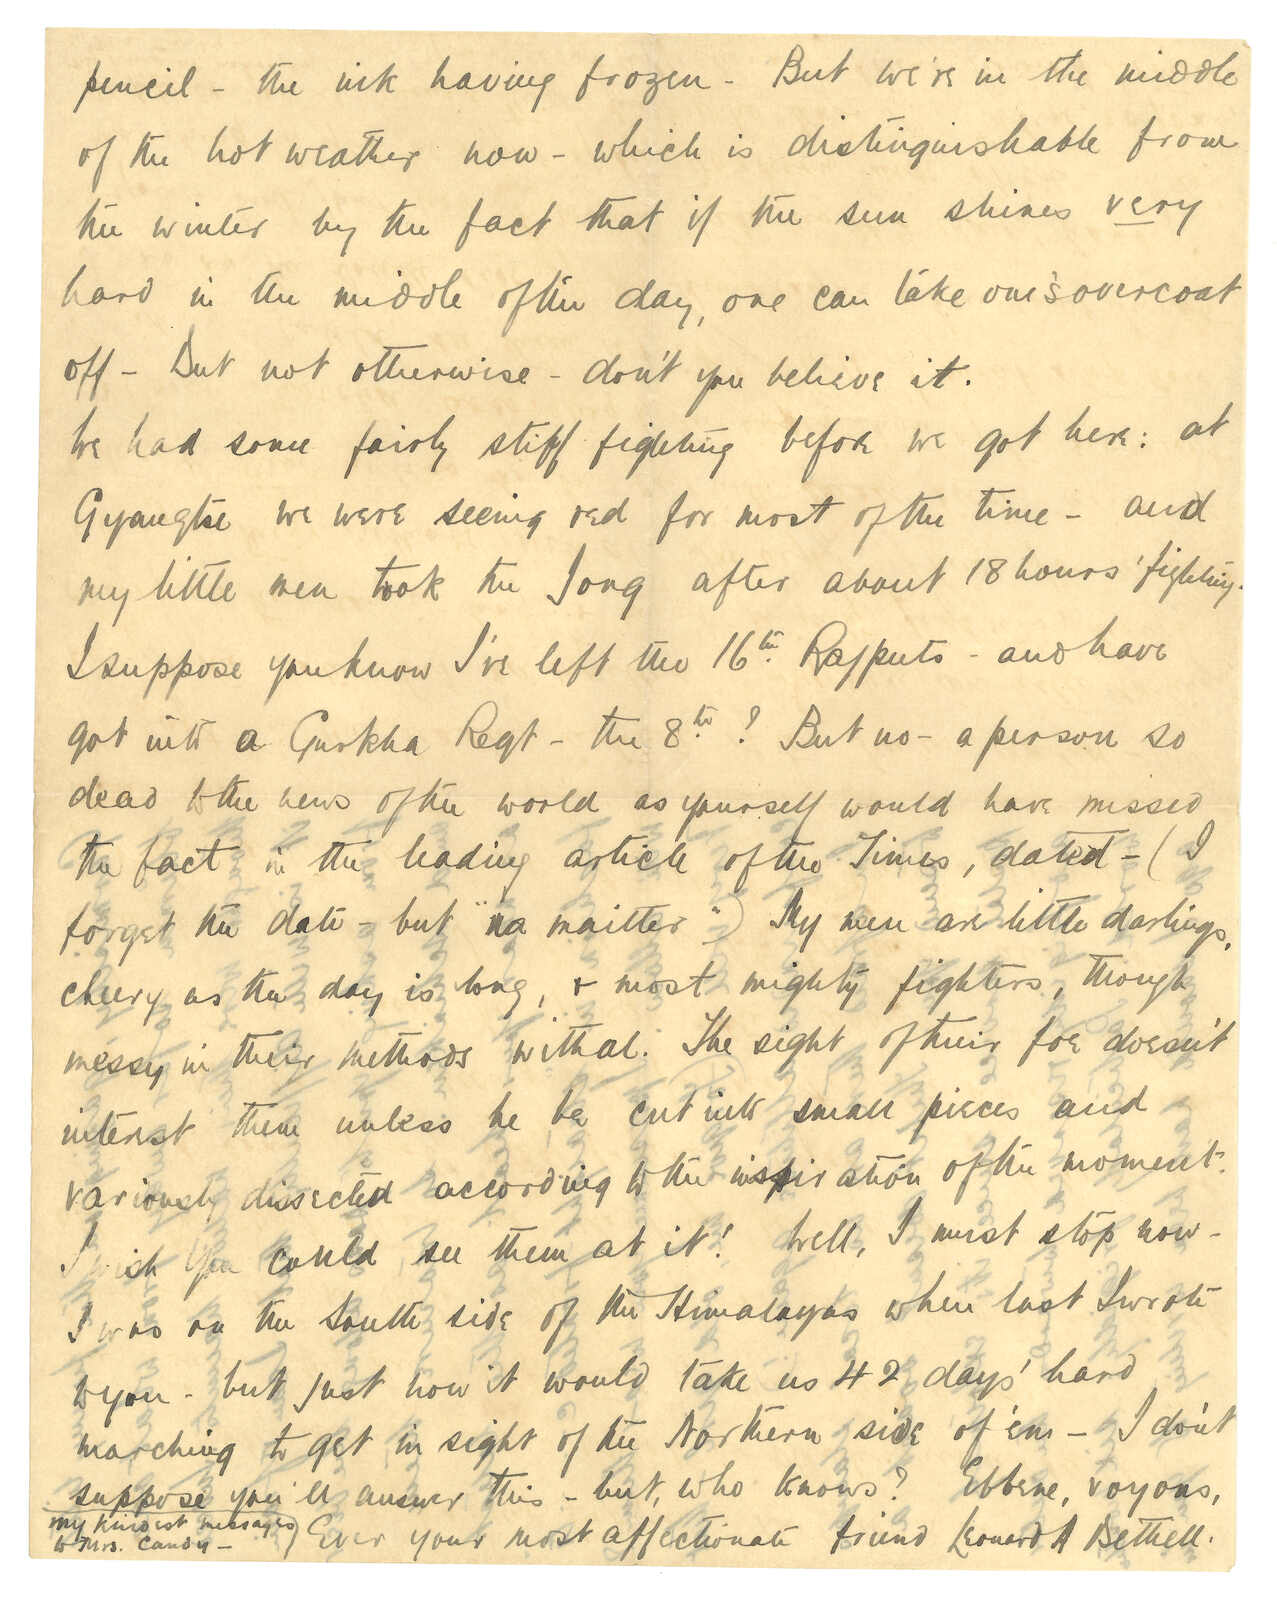 pencil - the ink having frozen - But we're in the middle
of the hot weather now - which is distinguishable from
the winter by the fact that if the sun shines very
hard in the middle of the day, one can take one's overcoat
off - But not otherwise - don't you believe it.
We had some fairly stiff fighting before we got here: at
Gyangtse we were seeing red for most of the time - and
my little men took the Jong after about 18 hours' fighting.
I suppose you know I've left the 16th. Rajputs - and have
got into a Gurkha Regt - the 8th. ? But no - a person so
dead to the news of the world as yourself would have missed
the fact in the leading article of the Times, dated - ( I
forget the date - but "na maitter") My men are little darlings,
cheery as the day is long, & most mighty fighters, though
messy in their methods withal. The sight of their foe doesn't
interest them unless he be cut into small pieces and
variously dissected according to the inspiration of the moment.
I wish you could see them at it! Well, I must stop now -
I was on the South side of the Himalayas when last I wrote
to you - but just now it would take us 42 days' hard
marching to get in sight of the Northern side of 'em - I don't
suppose you'll answer this - but, who knows? Ebbene, voyons,
my kindest messages
to Mrs. Candy -
Ever your most affectionate friend Leonard A Bethell.